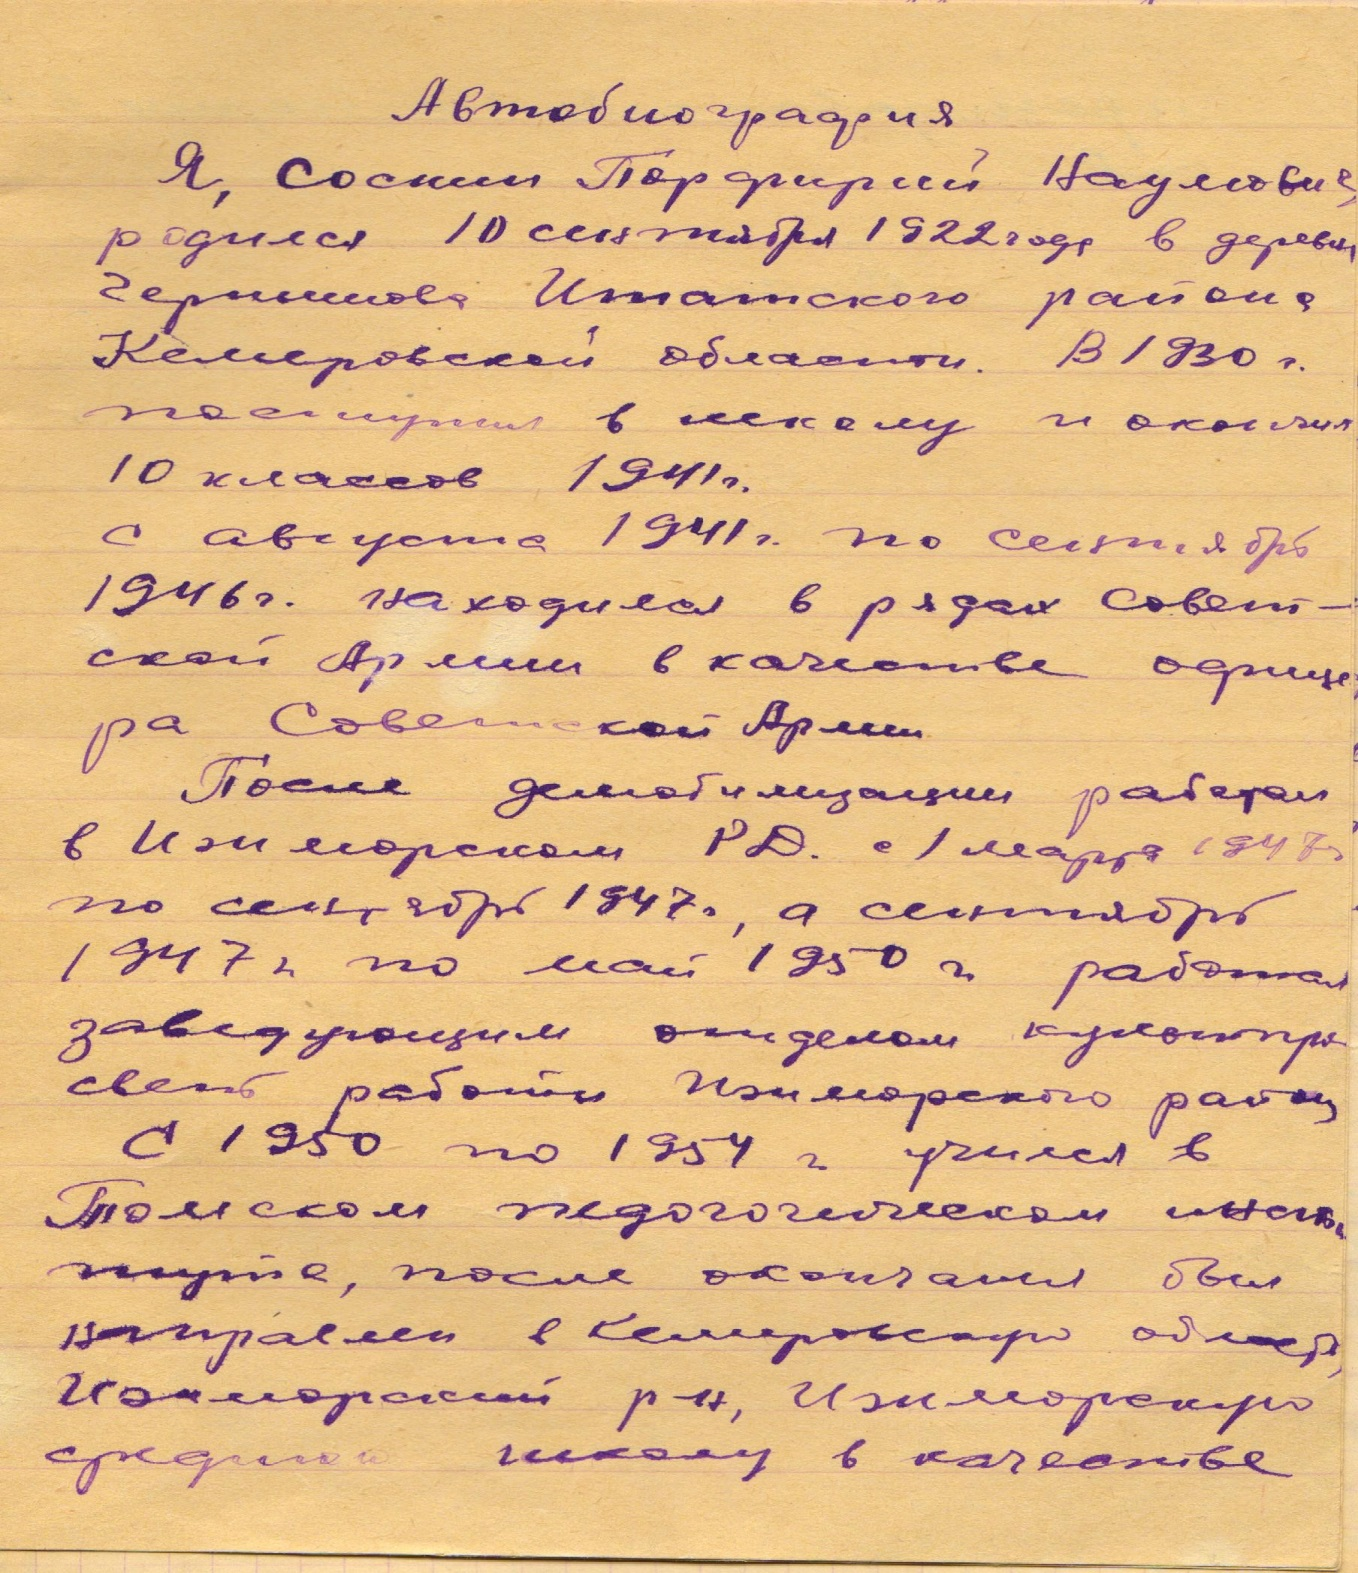 Автобиография
Я, Соснин Порфирий Наумович,
родился 10 сентября 1922 года в деревне
Итатского района
Кемеровской области. В 1930 г.
поступил в школу и окончил
10 классов 1941 г.
С августа 1941 г. по сентябрь
1946 г. находился в рядах Совет-
ской Армии в качестве офице
ра Советской Армии
После демобилизации работал
в Ижморском РД. с 1 марта 1947 г
по сентябрь 1947 г., а сентябрь
1947 г. по май 1950 г. работал
заведующим отделом культпро
свет работы Ижморского района
С 1950 по 1954 г. учился в
Томском педогогическом инсти
туте, после окончания был
направлен в Кемеровскую область,
Ижморский р-н, Ижморскую
среднюю школу в качестве